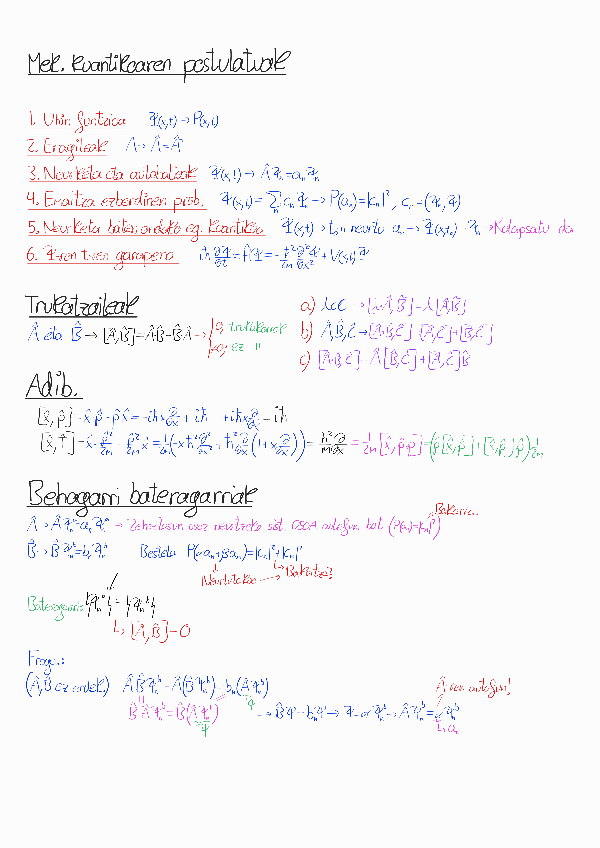 Mek. Kuantikoaren postulatuak
1. Uhin funtzioa Ψ(x,t) → P(x,t)
2. Eragileak A → Â = Â†
3. Neurketa eta autobalioak Ψ(x,t) → Â Ψₙ = aₙ Ψₙ
4. Emaitza ezberdinen prob. Ψ(x,t) = Σₙ cₙ Ψₙ → P(aₙ) = |cₙ|², cₙ = (Ψₙ, Ψ)
5. Neurketa baten ondoko eg. kuantikoa Ψ(x,t) → t₀n neurtu aₙ → Ψ(x,t₀) = Ψₙ → Kolapsatu da
6. Ψ-ren t-ren garapena iħ ∂Ψ/∂t = ĤΨ = -ħ²/2m ∂²Ψ/∂x² + V(x,t)Ψ
Trukatzaileak
 eta B̂ → [Â,B̂] = ÂB̂ - B̂Â →
0; trukakorrak
≠0; ez "
a) λ∈ℂ → [λÂ,B̂] = λ[Â,B̂]
b) Â,B̂,Ĉ → [Â+B̂,Ĉ] = [Â,Ĉ] + [B̂,Ĉ]
c) [ÂB̂,Ĉ] = Â[B̂,Ĉ] + [Â,Ĉ]B̂
Adib.
[x̂,p̂] = x̂p̂ - p̂x̂ = -iħx ∂/∂x + iħ + iħx ∂/∂x = iħ
[x̂,T̂] = x̂ p̂²/2m - p̂²/2m x̂ = 1/2m (-xħ² ∂²/∂x² + ħ² ∂/∂x (1 + x ∂/∂x)) = ħ²/m ∂/∂x = 1/2m [x̂,p̂·p̂] = (p̂[x̂,p̂] + [x̂,p̂]p̂) 1/2m
Behagarri bateragarriak
 → ÂΨₙᵃ = aₙΨₙᵃ → Zehaztasun osoz neurtzeko sist. OSOA autofun. bat (P(aₙ) = |cₙ|²)
Bakarra..
B̂ → B̂Ψₙᵇ = bₙΨₙᵇ Bestela P(aₙ, aₙ) = |cₙ|² + |cₙ|²
Neurtutakoa → Bakoitza?
Bateragarri: {Ψₙᵃ} = {Ψₙᵇ}
↳ [Â,B̂] = 0
Froga.:
(Â,B̂ ez endek) ÂB̂Ψₙᵇ = Â(B̂Ψₙᵇ) = bₙ(ÂΨₙᵇ)
Ψ
Â-ren autofun!
B̂ÂΨₙᵇ = B̂(ÂΨₙᵇ) → B̂Ψ = bₙΨ ⇒ Ψ = αΨₙᵇ → ÂΨₙᵇ = αΨₙᵇ
Ψ
↳ aₙ